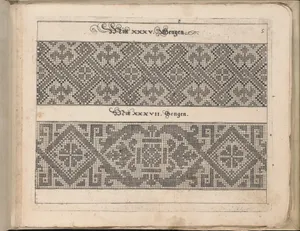 Mitt XXXV. Gengen.
Mitt XXXVII. Gengen.